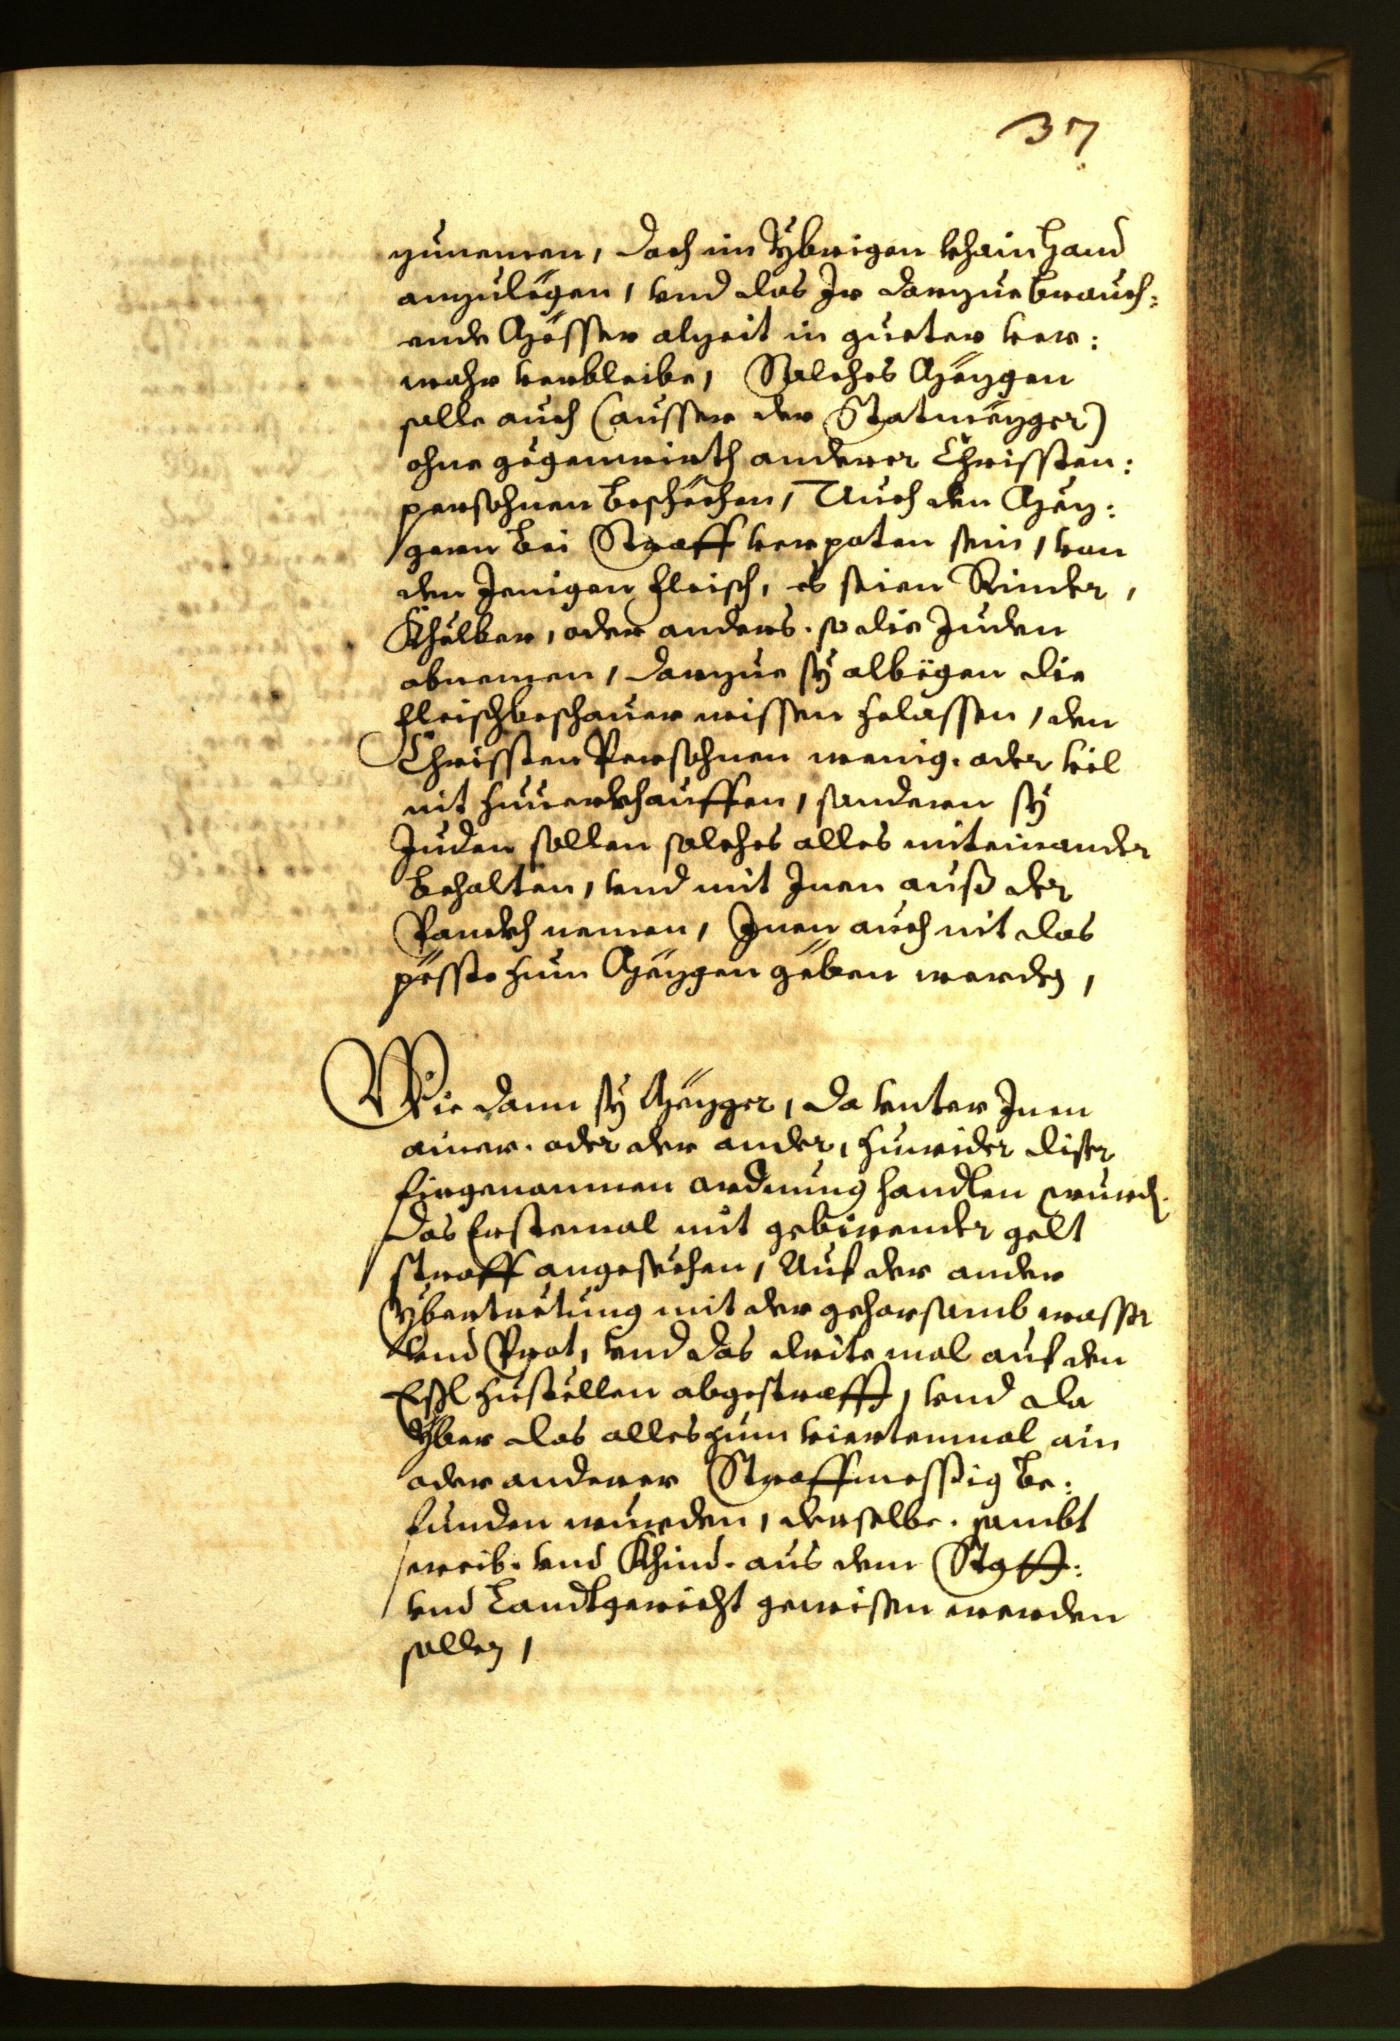 37
zunemen, doch im Ybrigen khain Hand
anzulegen, vnd das Ir darzue brauch:
ende Mösser alzeit in gueter ver:
wahr verbleibe, Solches Mezgen
solle auch (ausser der Statmezger)
ohne gegenwirth anderer Christen:
persohnen beschehen, Auch den Mez:
gern bei Straff verpoten sein, von
den Jenigen fleisch, es seien Rinder,
Khelber, oder anders. so die Juden
abnemen, darzue sy albegen die
fleischbeschauer wissen zelassen, den
Christen Persohnen wenig. oder vil
nit zuuerkhauffen, sonderen sy
Juden sollen solches alles miteinander
behalten, vnd mit Inen auß der
Panckh nemen, Inen auch nit das
pesste zum Mezgen geben werden,
Wie dann sy Mezger, da vnter Inen
ainer. oder der ander, zuwider diser
firgenomnen ordnung handlen wurd.
das Erstemal mit gebirender gelt
straff angesechen, Auf der ander
Ybertretung mit der gehorsamb wasser
vnd Prot, vnd das drite mal auf den
Esl zustellen abgestrafft, vnd da
Yber das alles zum viertenmal ain
oder anderer Straffmessig be:
funden wurden, derselbe. sambt
weib. vnd Khind. aus dem Statt:
vnd Landtgericht gewisen werden
sollen,